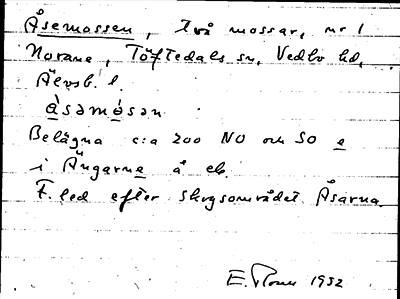 Åsemossen, två mossar, nr 1
Norane, Töftedals sn, Vedbo hd,
Älvsb. l.
à̱səmò̱sən.
Belägna c:a 200 NO och SO e
i Ängarne å ek.
F. led efter skogsområdet Åsarna.
E. 1932